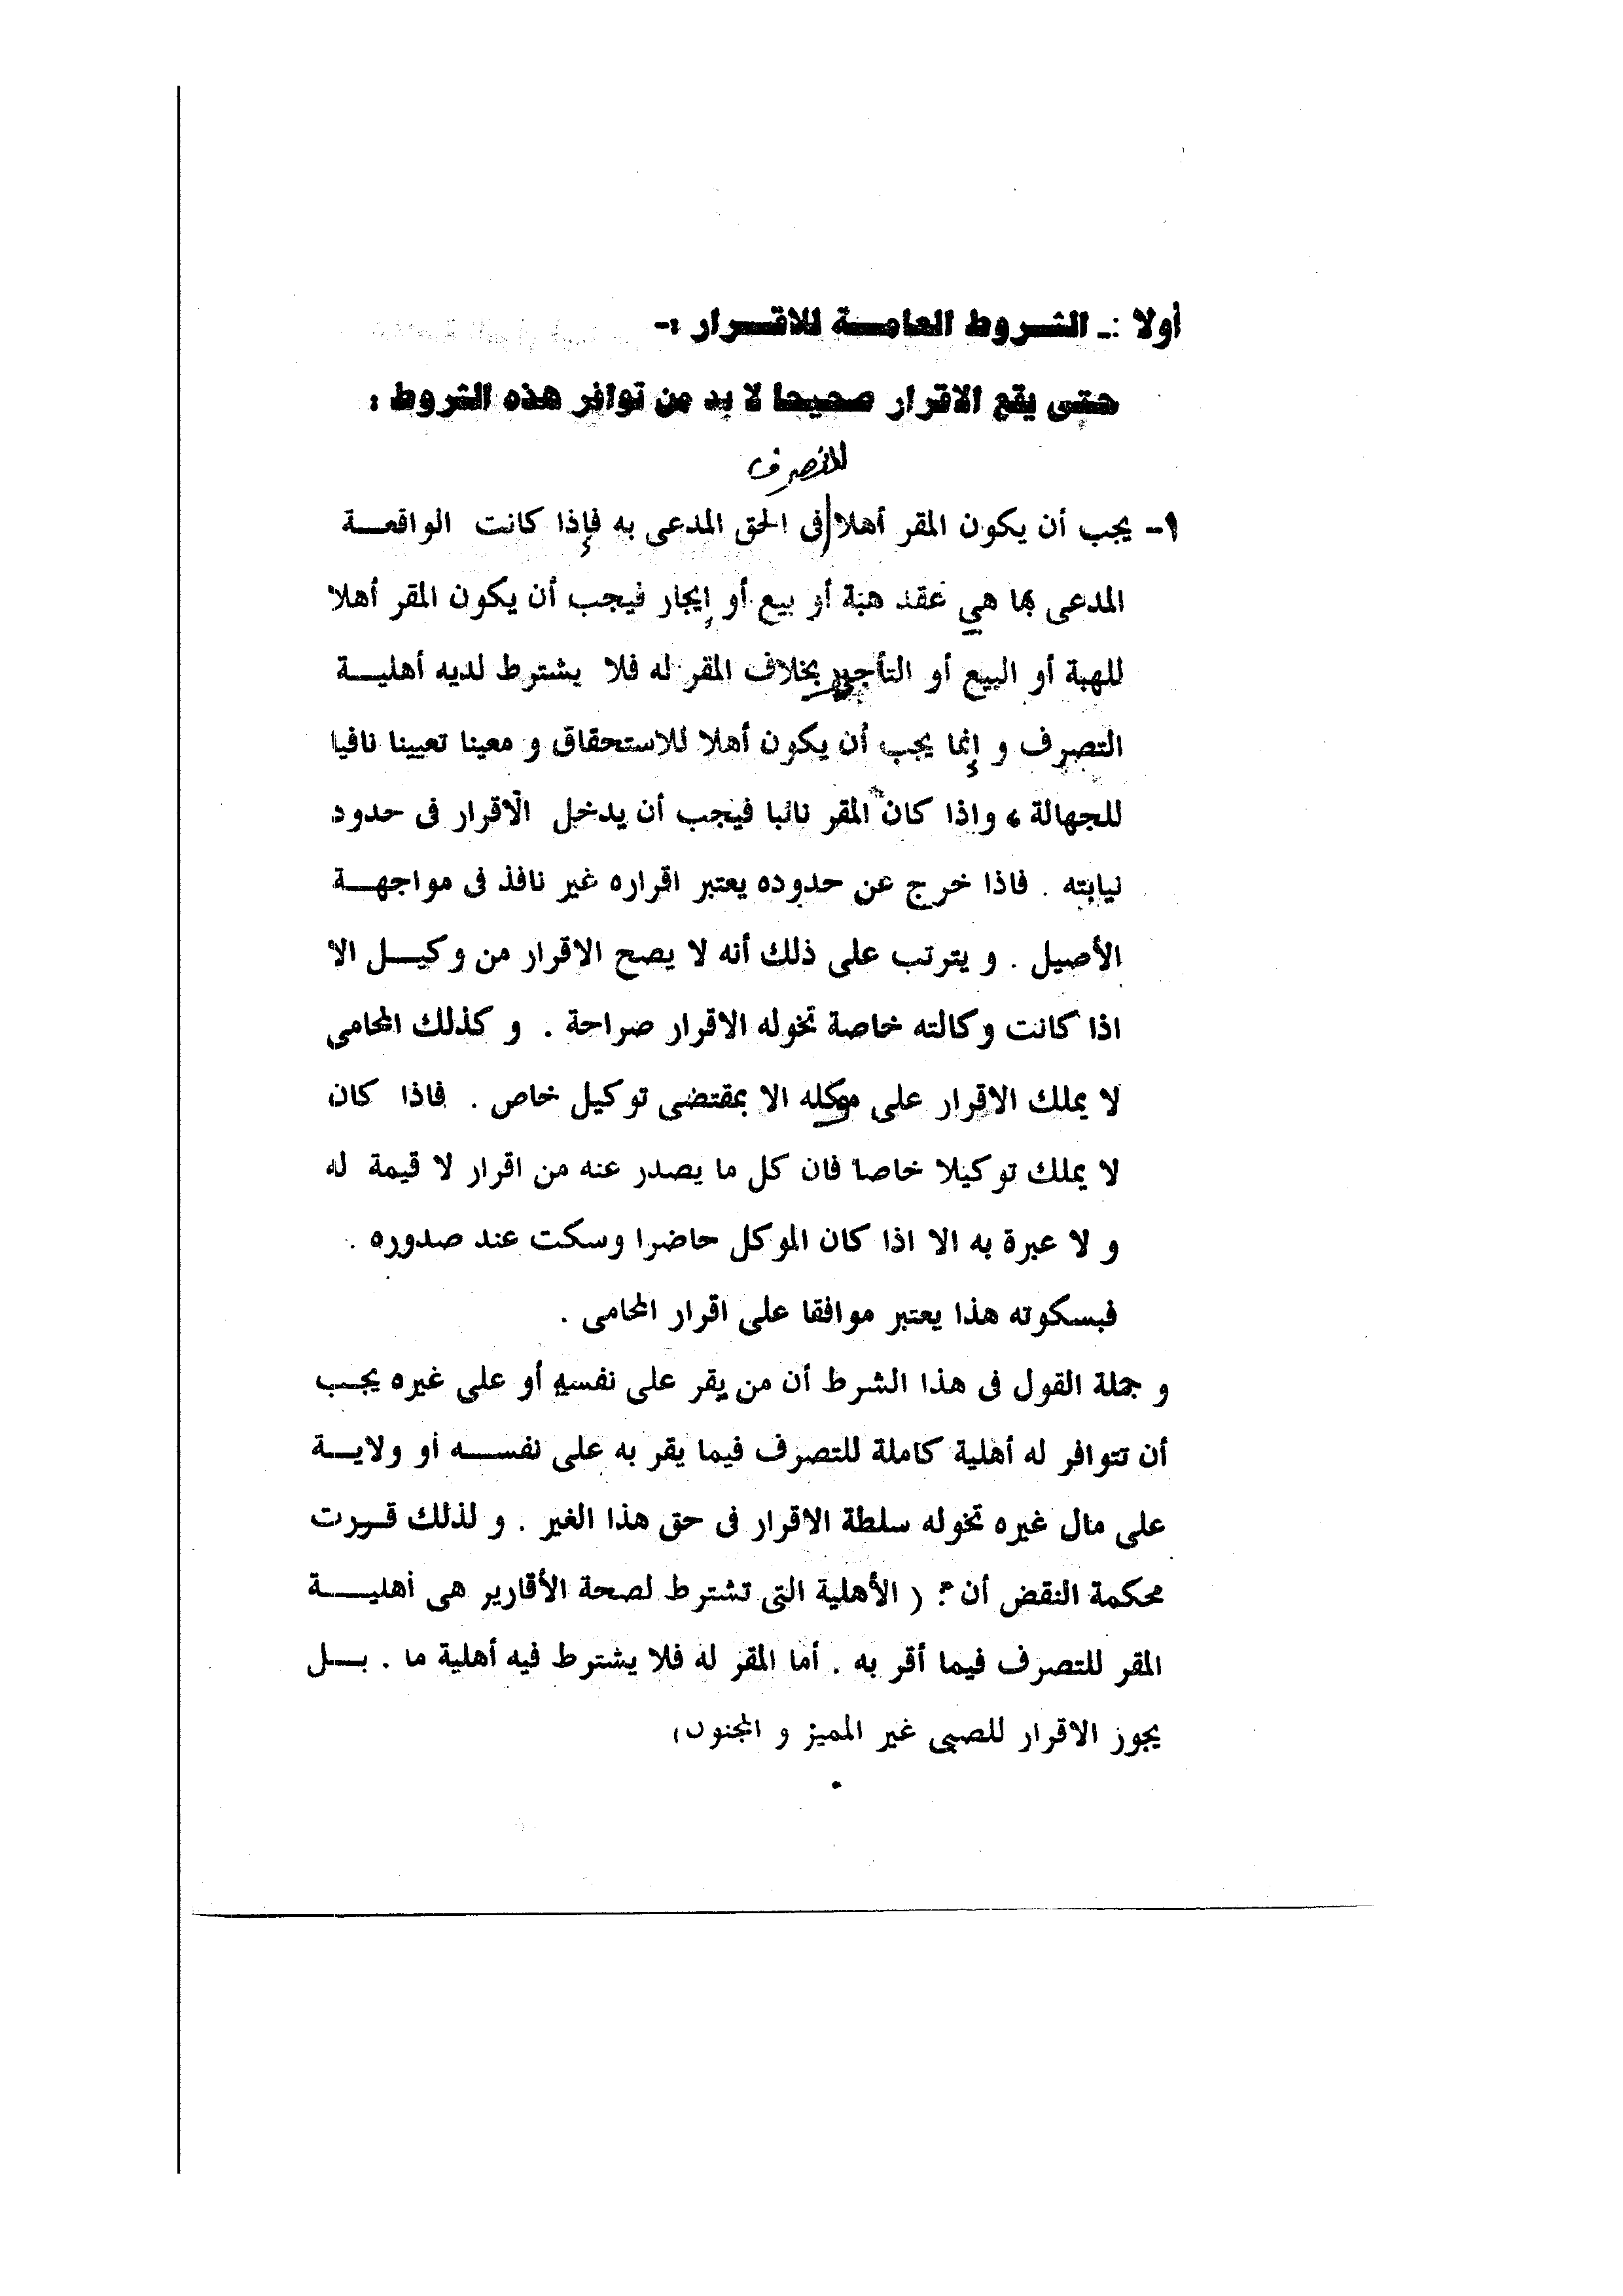 أولا :ـ الشروط العامة للاقرار :-
حتى يقع الاقرار صحيحا لا بد من توافر هذه الشروط :
للتصرف
١- يجب أن يكون المقر أهلا في الحق المدعى به فإذا كانت الواقعة
المدعى بها هي عقد هبة أو بيع أو إيجار فيجب أن يكون المقر أهلا
للهبة أو البيع أو التأجير بخلاف المقر له فلا يشترط لديه أهلية
التصرف و إنما يجب أن يكون أهلا للاستحقاق و معينا تعيينا نافيا
للجهالة ، واذا كان المقر نائبا فيجب أن يدخل الاقرار فى حدود
نيابته . فاذا خرج عن حدوده يعتبر اقراره غير نافذ فى مواجهة
الأصيل . و يترتب على ذلك أنه لا يصح الاقرار من وكيل الا
اذا كانت وكالته خاصة تخوله الاقرار صراحة . و كذلك المحامى
لا يملك الاقرار على موكله الا بمقتضى توكيل خاص . فاذا كان
لا يملك توكيلا خاصا فان كل ما يصدر عنه من اقرار لا قيمة له
و لا عبرة به الا اذا كان الموكل حاضرا وسكت عند صدوره .
فبسكوته هذا يعتبر موافقا على اقرار المحامى .
و جملة القول فى هذا الشرط أن من يقر على نفسه أو على غيره يجب
أن تتوافر له أهلية كاملة للتصرف فيما يقر به على نفسه أو ولاية
على مال غيره تخوله سلطة الاقرار فى حق هذا الغير . و لذلك قررت
محكمة النقض أن : ( الأهلية التى تشترط لصحة الأقارير هى أهلية
المقر للتصرف فيما أقر به . أما المقر له فلا يشترط فيه أهلية ما . بل
يجوز الاقرار للصبى غير المميز و المجنون)